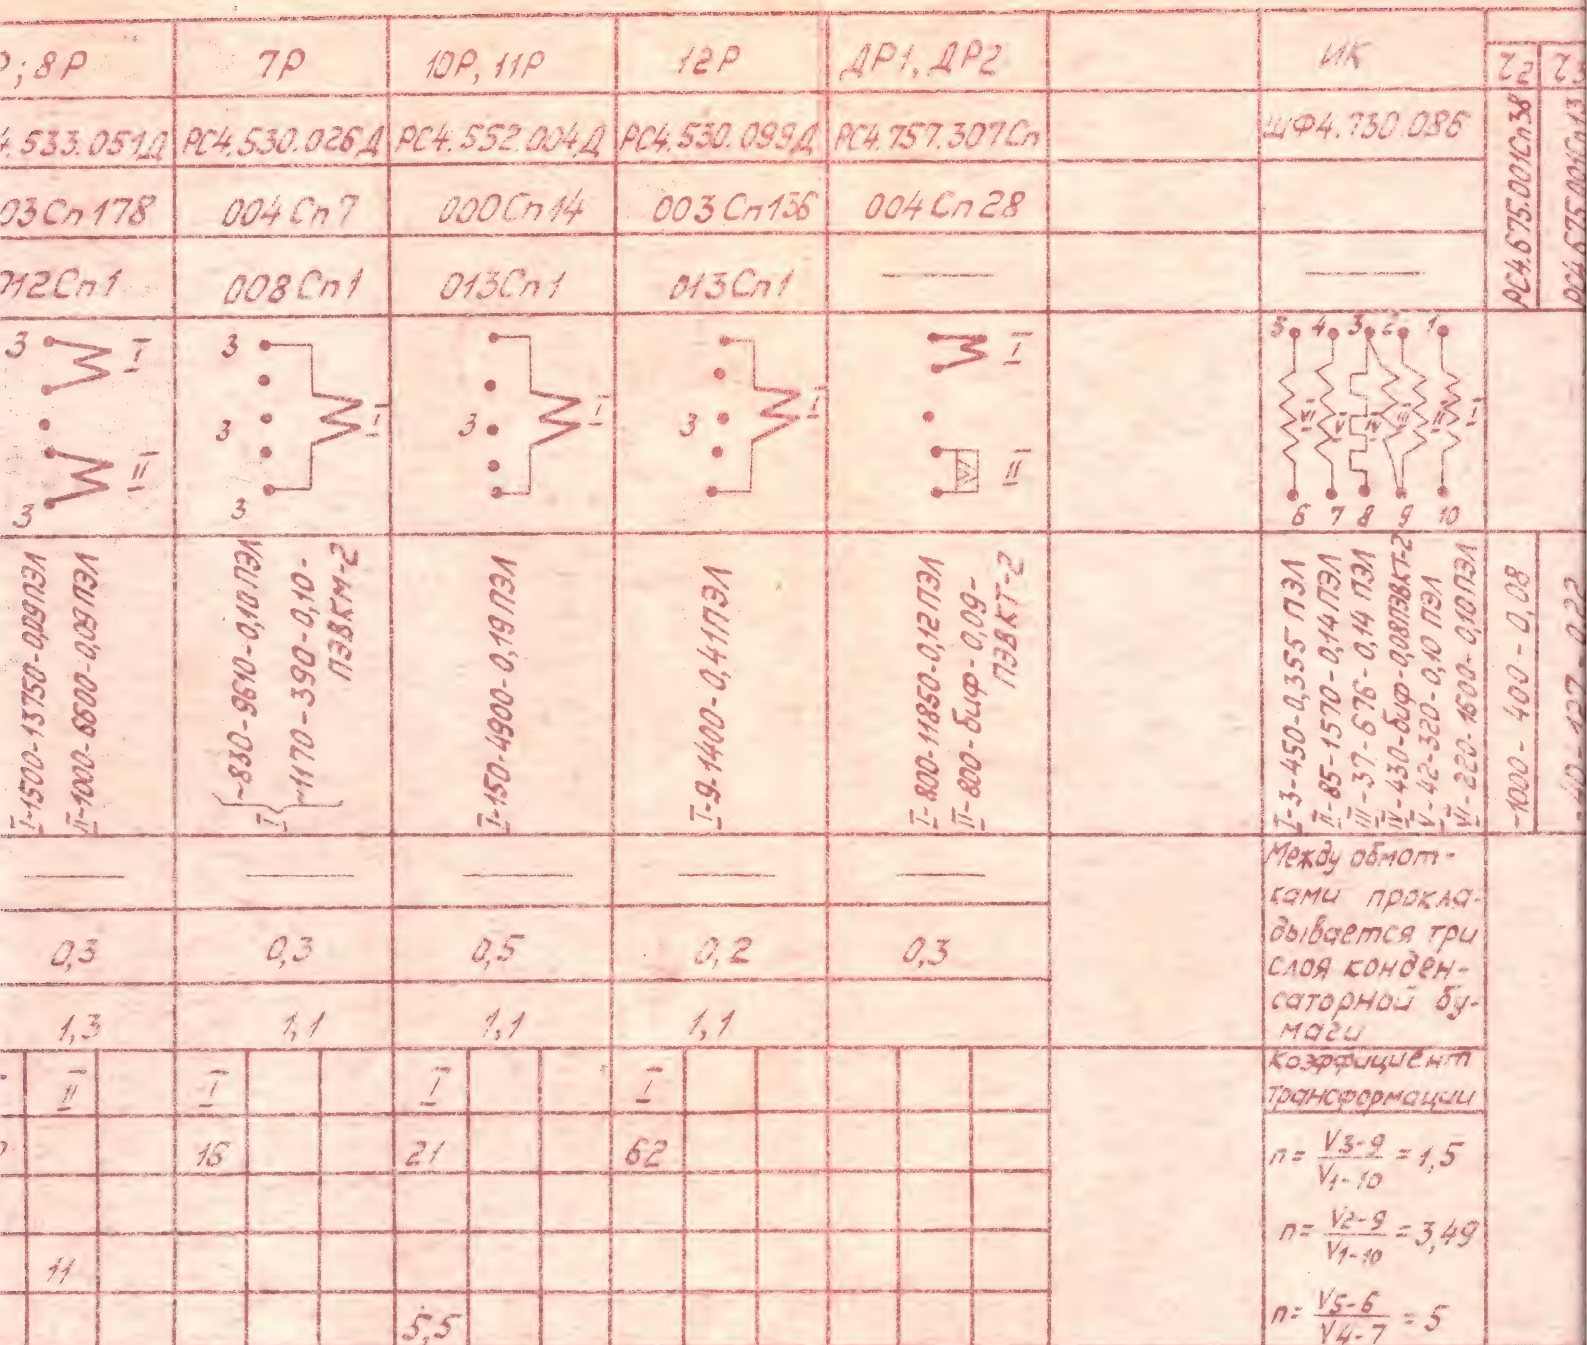 ; 8Р 7Р 10Р, 11Р 12Р ДР1, ДР2 ИК τ2
4.533.051Д РС4.530.026Д РС4.552.004Д РС4.530.099Д РС4.757.307Сп ШФ4.730.086
03Сп178 004Сп7 000Сп14 003Сп136 004Сп28
012Сп1 008Сп1 013Сп1 013Сп1
РС4.675.001Сп38
РС4.675.001Сп13
3 I
II
3
3
3 I
3
3 I
3 I
I
II
5 4 3 2 1
VI V IV III II I
6 7 8 9 10
I-1500-13750-0,09ПЭЛ
II-1000-6600-0,09ПЭЛ
I ~830-9610-0,10ПЭЛ
~1170-390-0,10-
ПЭВКМ-2
I-150-4900-0,19ПЭЛ
I-9-1400-0,41ПЭЛ
I-800-11850-0,12ПЭЛ
II-800-биф-0,09-
ПЭВКТ-2
I-3-450-0,355 ПЭЛ
II-85-1570-0,14ПЭЛ
III-37-676-0,14 ПЭЛ
IV-430-биф-0,08ПЭВКТ-2
V-42-320-0,10 ПЭЛ
VI-220-1600-0,10ПЭЛ
-1000-400-0,08
Между обмот-
ками прокла-
дывается три
слоя конден-
саторной бу-
маги
0,3 0,3 0,5 0,2 0,3
1,3 1,1 1,1 1,1
коэффициент
трансформации
II I I I
16 21 62
n= V3-9 / V1-10 = 1,5
n= V2-9 / V1-10 = 3,49
11
5,5
n= V5-6 / V4-7 = 5